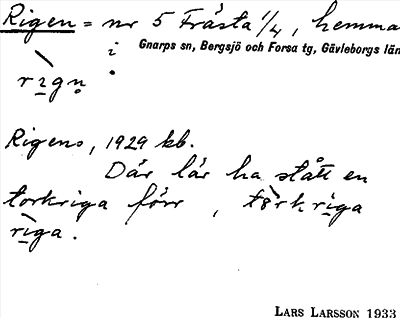 Rigen = nr 5 Frästa 1/4, hemma
i Gnarps sn, Bergsjö och Forsa tg, Gävleborgs län
rign
Rigens, 1929 kb.
Där lär ha stått en
torkriga förr, törkriga
riga.
LARS LARSSON 1933